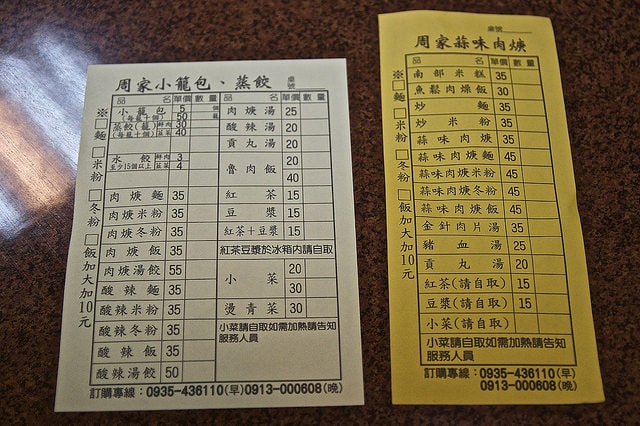 周家小籠包、蒸餃 桌號
品名 單價 數量 品名 單價 數量
小籠包 5
(每籠十個) 50
蒸餃(籠) 鮮肉 30
(每籠十個) 韮菜 40
水餃 鮮肉 3
至少15個以上 韮菜 4
肉焿麵 35
肉焿米粉 35
肉焿冬粉 35
肉焿飯 35
肉焿湯餃 55
酸辣麵 35
酸辣米粉 35
酸辣冬粉 35
酸辣飯 35
酸辣湯餃 50
肉焿湯 25
酸辣湯 20
貢丸湯 20
魯肉飯 20
40
紅茶 15
豆漿 15
紅茶+豆漿 15
紅茶豆漿於冰箱內請自取
小菜 20
30
燙青菜 30
小菜請自取如需加熱請告知
服務人員
※□麵□米粉□冬粉□飯加大加10元
訂購專線：0935-436110(早)0913-000608(晚)
桌號
周家蒜味肉焿
品名 單價 數量
南部米糕 35
魚鬆肉燥飯 30
炒麵 35
炒米粉 35
蒜味肉焿 35
蒜味肉焿麵 45
蒜味肉焿米粉 45
蒜味肉焿冬粉 45
蒜味肉焿飯 45
金針肉片湯 35
豬血湯 25
貢丸湯 20
紅茶(請自取) 15
豆漿(請自取) 15
小菜(請自取)
小菜請自取如需加熱請告知
服務人員
※□麵□米粉□冬粉□飯加大加10元
訂購專線：0935-436110(早)
0913-000608(晚)